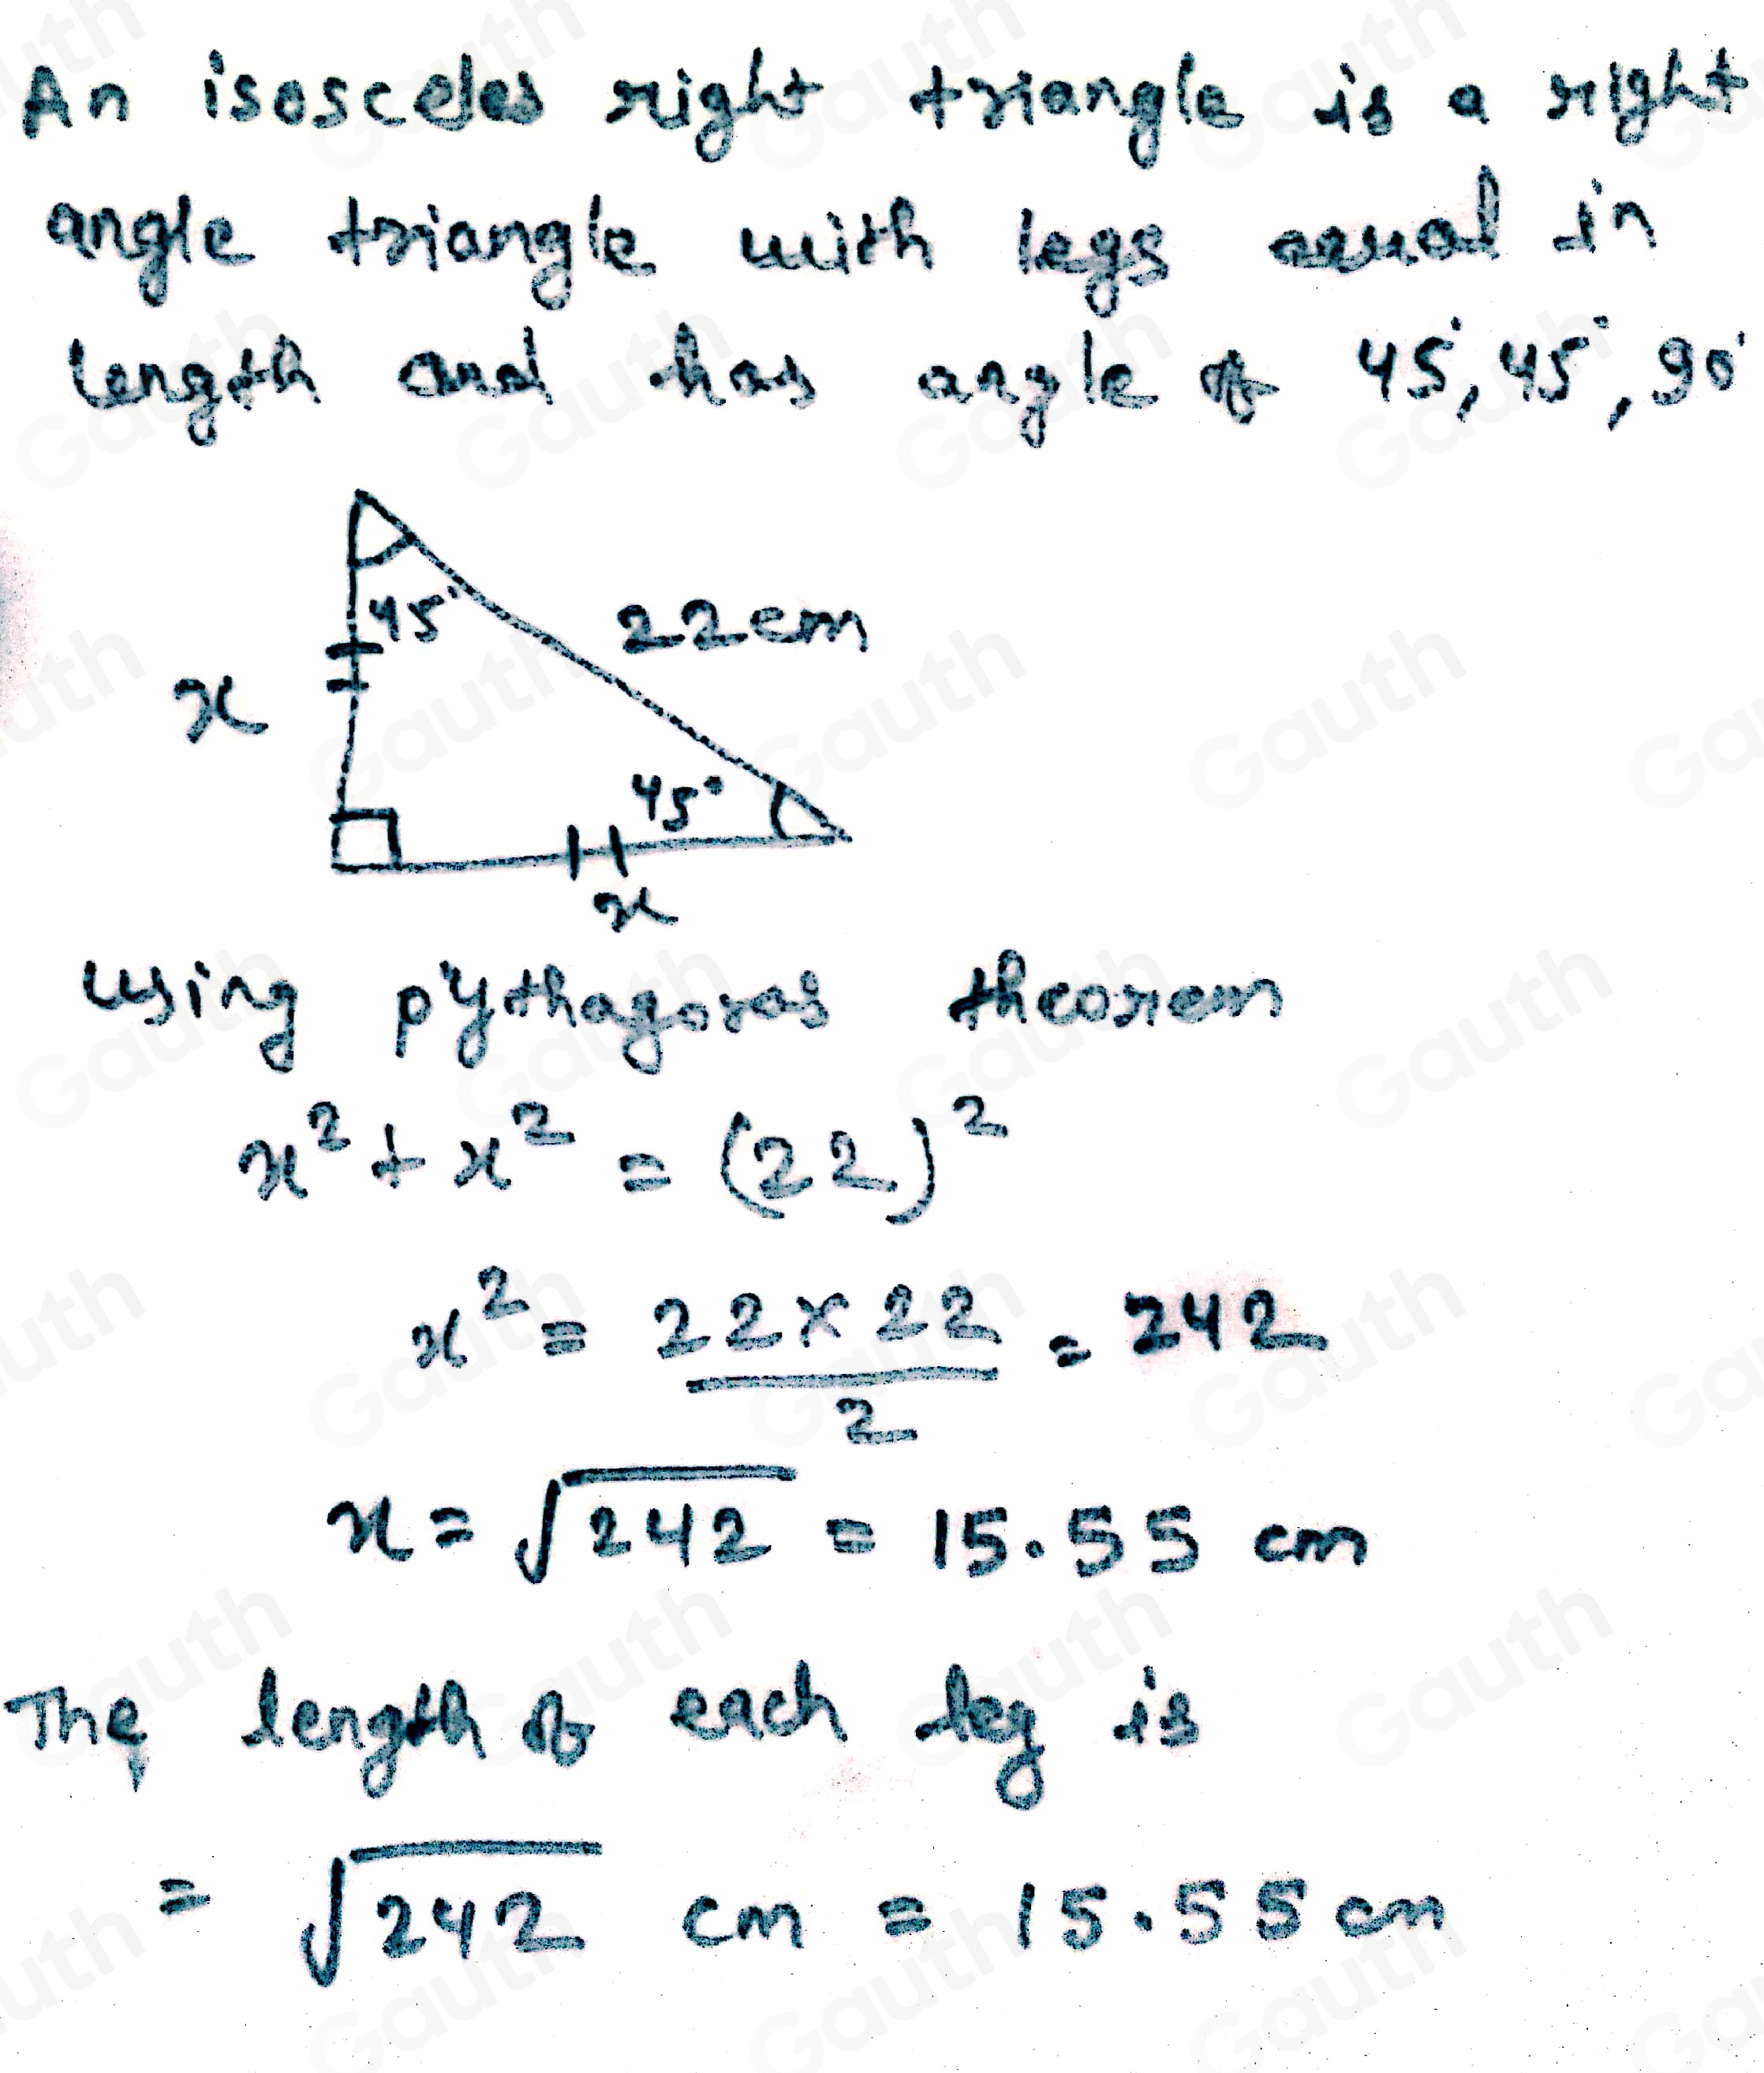 An isosceles right triangle is a right
angle triangle with legs equal in
length and has angle of 45°, 45°, 90°
45°
22 cm
x
45°
x
using pythagoras theorem
x² + x² = (22)²
x² = 22 × 22 / 2 = 242
x = √242 = 15.55 cm
The length of each leg is
= √242 cm = 15.55 cm
Gauth